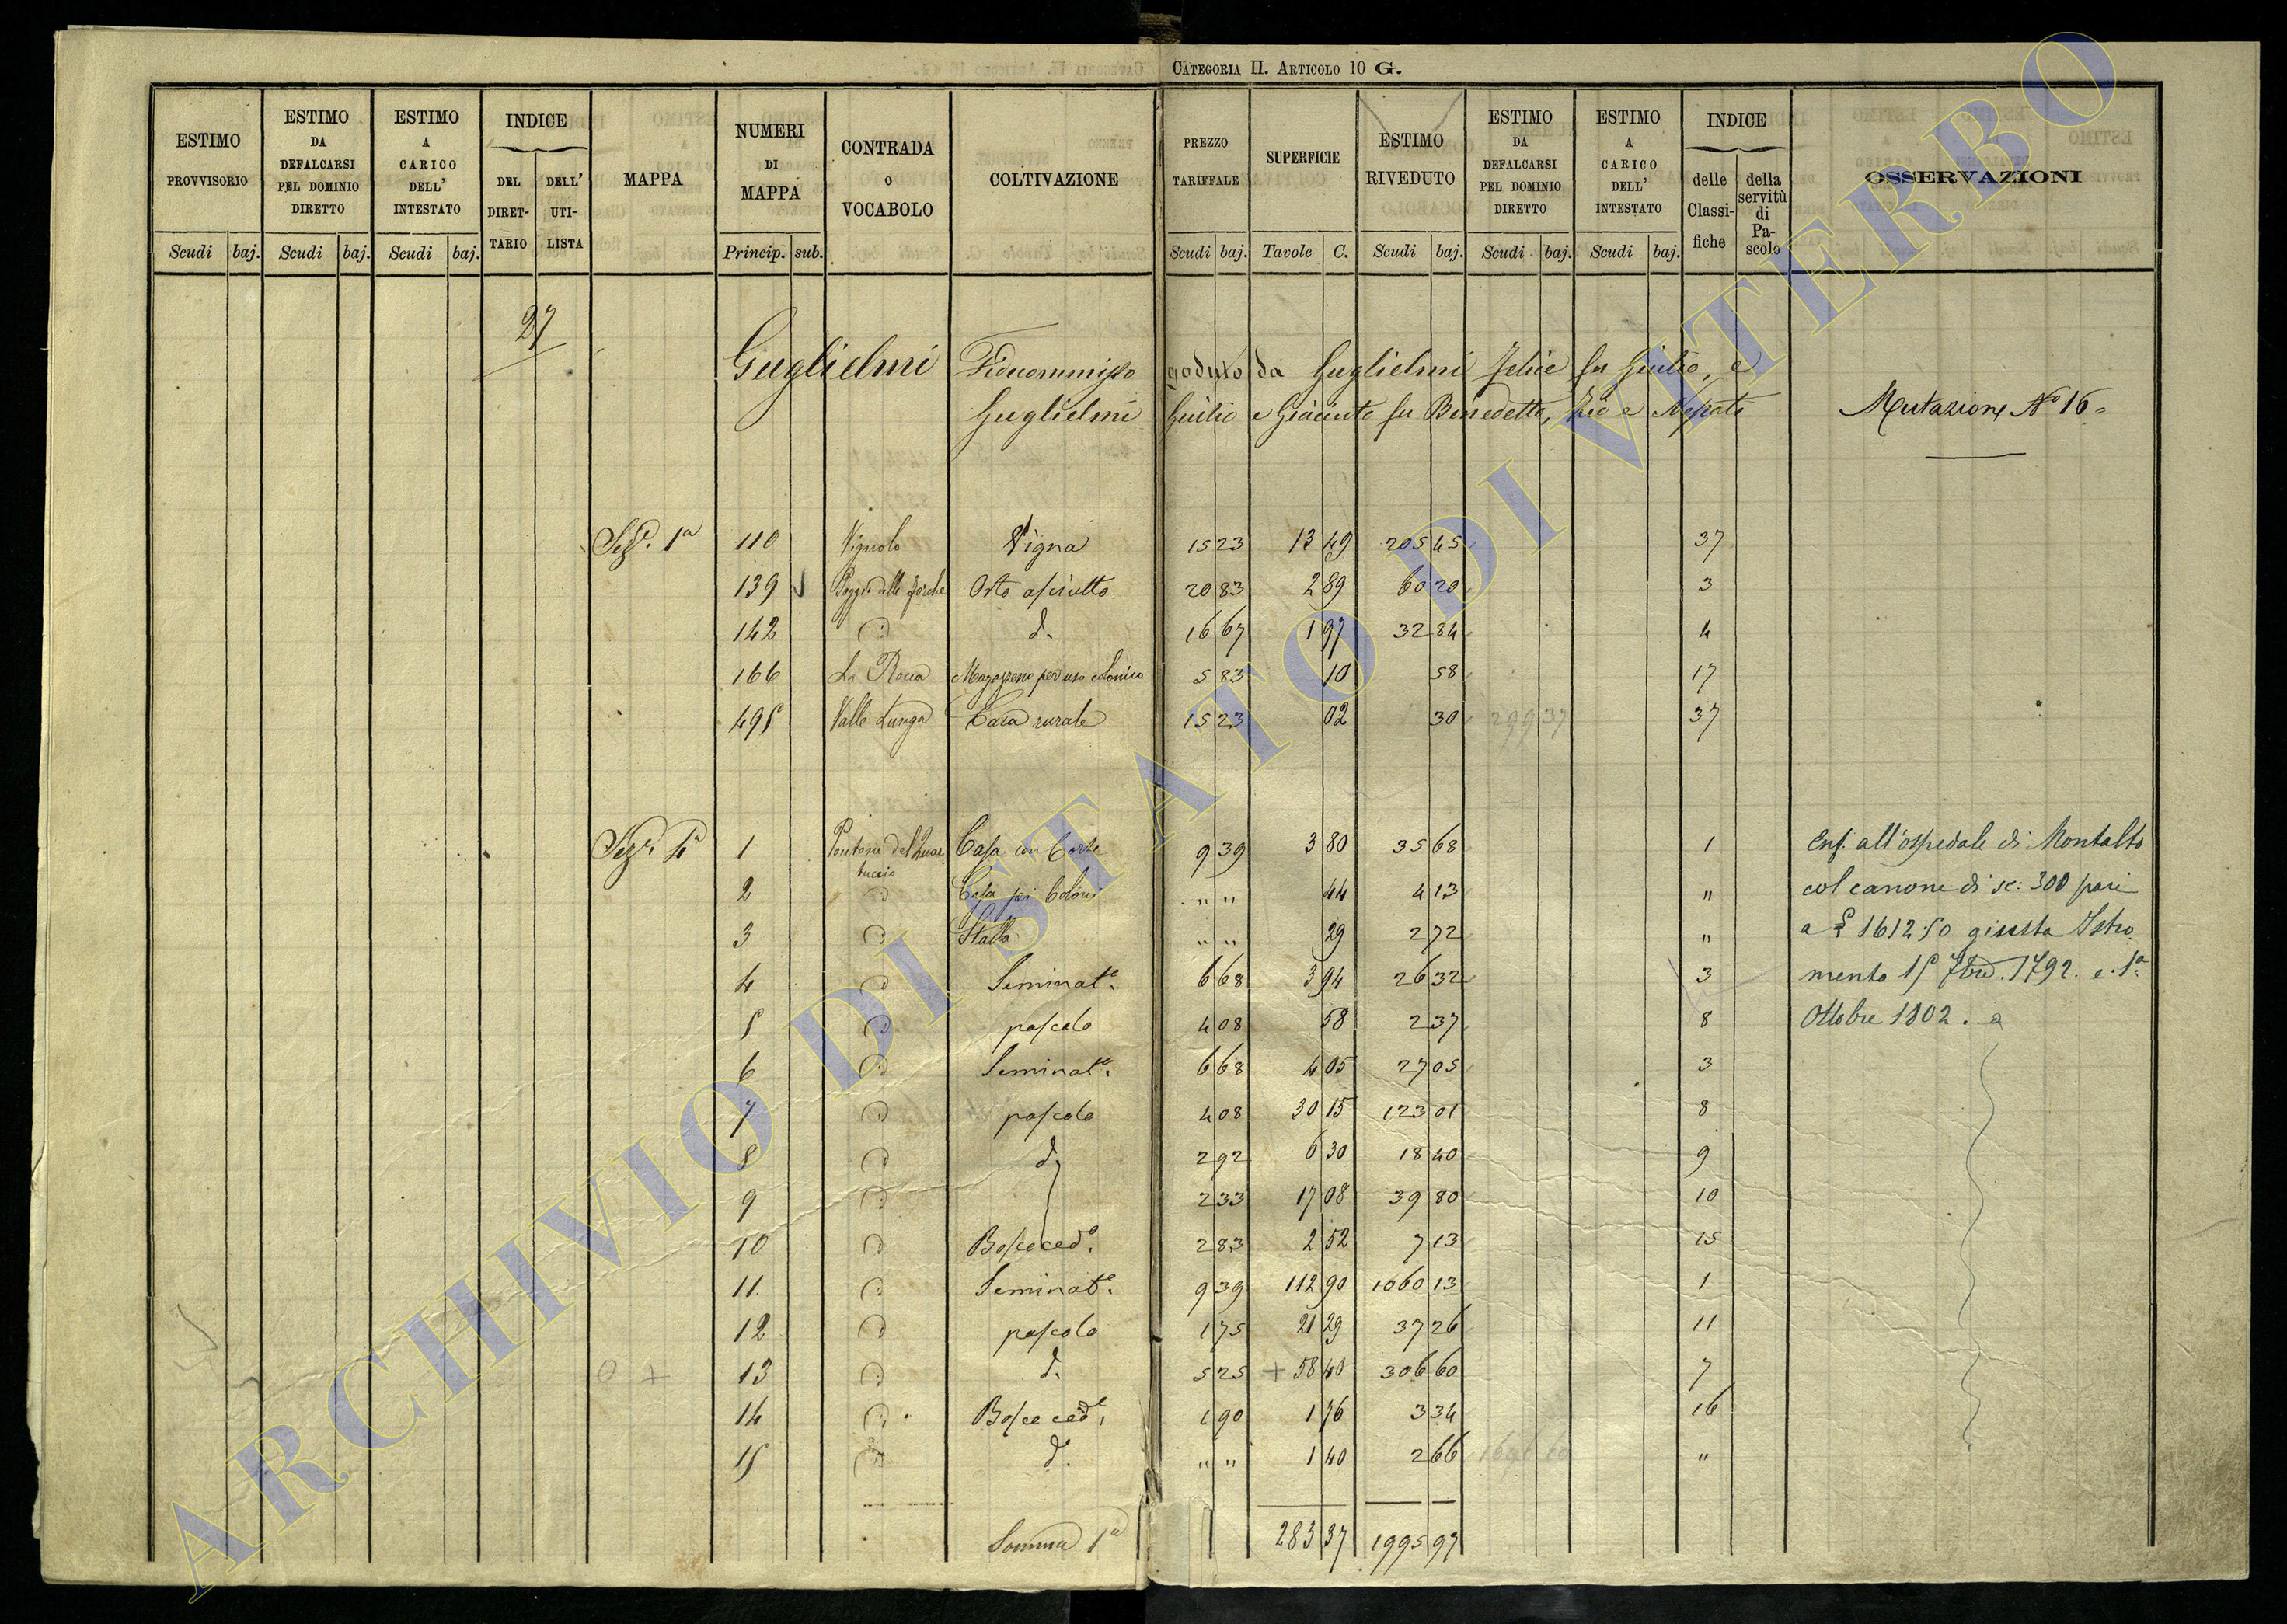 CATEGORIA II. ARTICOLO 10 G.
ESTIMO PROVVISORIO Scudi baj.
ESTIMO DA DEFALCARSI PEL DOMINIO DIRETTO Scudi baj.
ESTIMO A CARICO DELL' INTESTATO Scudi baj.
INDICE DEL DIRET-TARIO DELL' UTI-LISTA
MAPPA
NUMERI DI MAPPA Princip. sub.
CONTRADA O VOCABOLO
COLTIVAZIONE
PREZZO TARIFFALE Scudi baj.
SUPERFICIE Tavole C.
ESTIMO RIVEDUTO Scudi baj.
ESTIMO DA DEFALCARSI PEL DOMINIO DIRETTO Scudi baj.
ESTIMO A CARICO DELL' INTESTATO Scudi baj.
INDICE delle Classi-fiche della servitù di Pa-scolo
OSSERVAZIONI
27
Guglielmi Fidecommisso goduto da Guglielmi Felice fu Giulio, e
Guglielmi Giulio e Giacinto fu Benedetto, Zio e Nepoti
Mutazione No 16
Sez.e 1a 110 Vignolo Vigna 15 23 13 49 205 45 37
139 Poggio delle forche Orto asciutto 20 83 2 89 60 20 3
142 d. 16 67 1 97 32 84 4
166 La Rocca Magazzeno per uso colonico 5 83 10 58 17
495 Valle Lunga Casa rurale 15 23 02 30 299 37 37
Sez.e 4a 1 Pontone del Quar-tuccio Casa con Corte 9 39 3 80 35 68 1
2 Casa pei Coloni " " 44 4 13 "
3 Stalla " " 29 2 72 "
4 Seminat.o 6 68 3 94 26 32 3
5 pascolo 4 08 58 2 37 8
6 Seminat.o 6 68 4 05 27 05 3
7 pascolo 4 08 30 15 123 01 8
8 d. 2 92 6 30 18 40 9
9 2 33 17 08 39 80 10
10 Bosco ced.o 2 83 2 52 7 13 15
11 Seminat.o 9 39 112 90 1060 13 1
12 pascolo 1 75 21 29 37 26 11
0 + 13 d. 5 25 + 58 40 306 60 7
14 Bosco ced.o 1 90 1 76 3 34 16
15 d.o " " 1 40 2 66 "
Somma 1a 283 37 1995 97
Enf. all'ospedale di Montalto
col canone di sc: 300 pari
a £ 1612:50 giusta Istro
mento 15 7bre. 1792. e 1o
Ottobre 1802.
ARCHIVIO DI STATO DI VITERBO